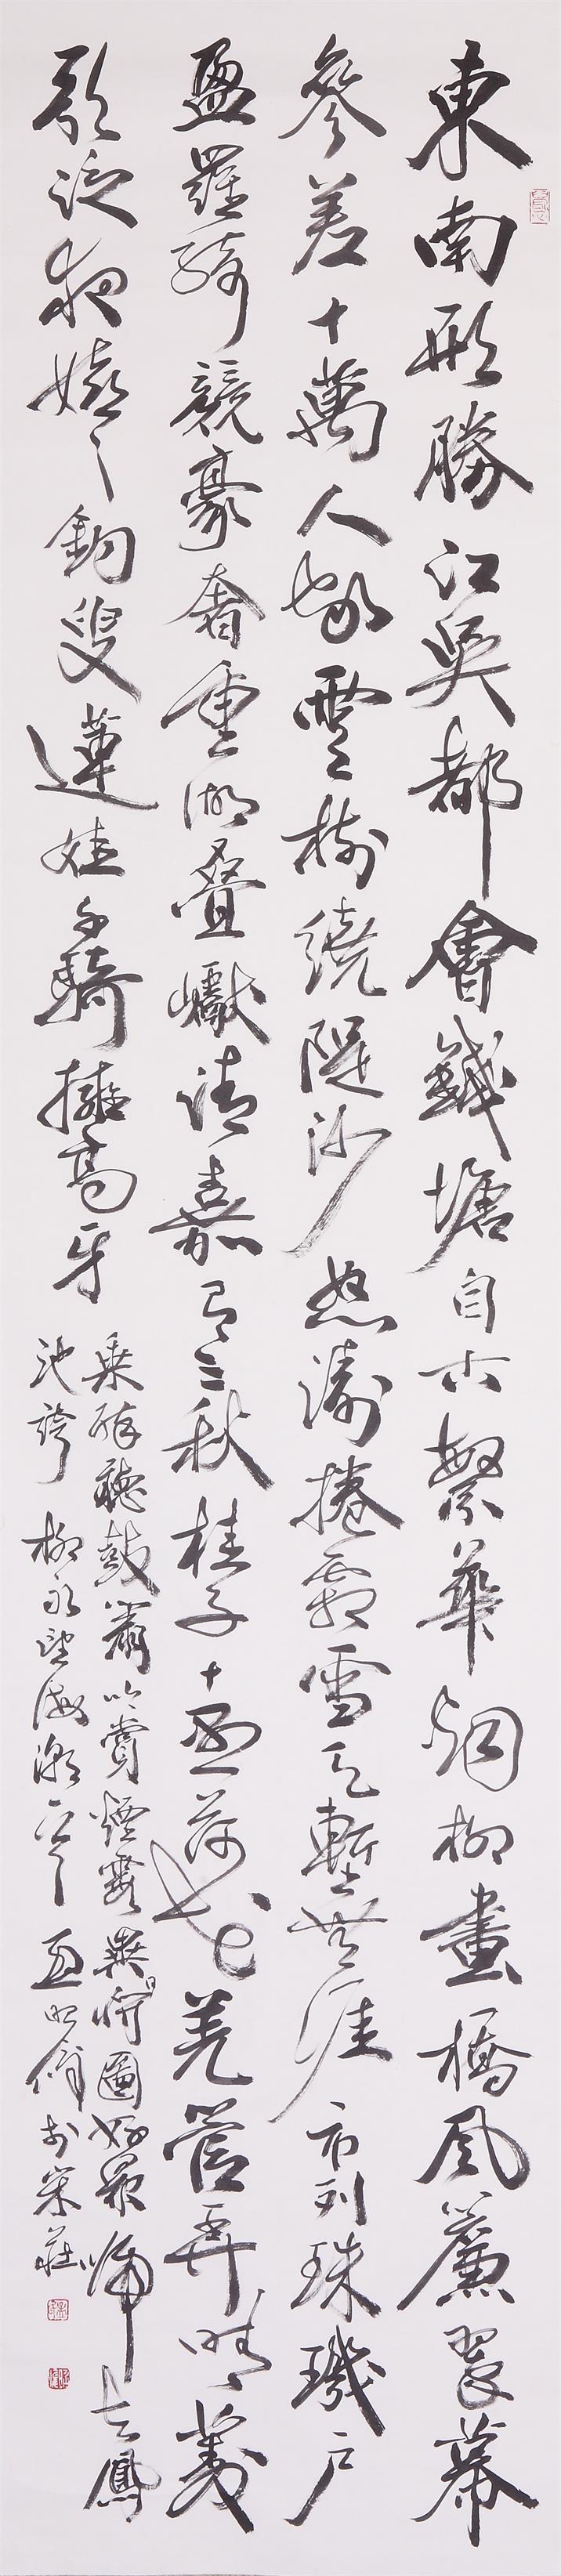 東南形勝江吳都會錢塘自古繁華烟柳畫橋風簾翠幕
參差十萬人家雲樹繞隄沙怒濤捲霜雪天塹無涯市列珠璣戶
盈羅綺競豪奢重湖疊巘清嘉有三秋桂子十里荷花羌管弄晴菱
歌泛夜嬉〻釣叟蓮娃千騎擁高牙
乘醉聽鼓簫吟賞煙霞異日將圖好景歸去鳳
池誇 柳永望海潮一首 於宋莊